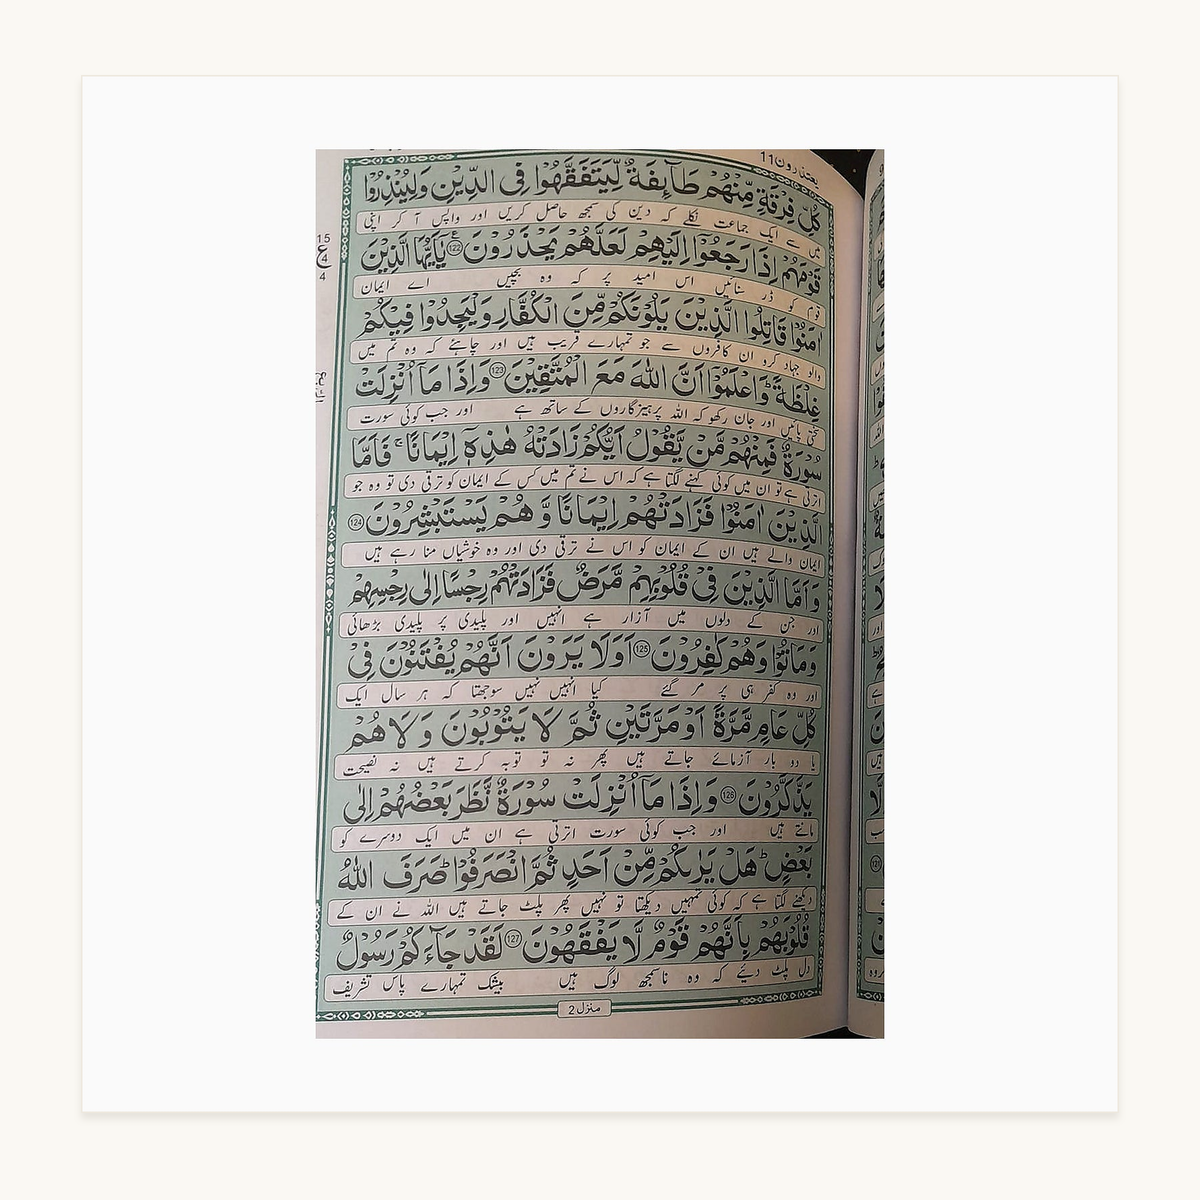 يعتذرون11
كُلِّ فِرْقَةٍ مِّنْهُمْ طَآئِفَةٌ لِّيَتَفَقَّهُوْا فِى الدِّيْنِ وَلِيُنْذِرُوْا
میں سے ایک جماعت نکلے کہ دین کی سمجھ حاصل کریں اور واپس آ کر اپنی
قَوْمَهُمْ اِذَا رَجَعُوْا اِلَيْهِمْ لَعَلَّهُمْ يَحْذَرُوْنَ 122 يٰٓاَيُّهَا الَّذِيْنَ
قوم کو ڈر سنائیں اس امید پر کہ وہ بچیں اے ایمان
15
ع
4
4
اٰمَنُوْا قَاتِلُوا الَّذِيْنَ يَلُوْنَكُمْ مِّنَ الْكُفَّارِ وَلْيَجِدُوْا فِيْكُمْ
والو جہاد کرو ان کافروں سے جو تمہارے قریب ہیں اور چاہئے کہ وہ تم میں
غِلْظَةً ؕ وَاعْلَمُوْٓا اَنَّ اللّٰهَ مَعَ الْمُتَّقِيْنَ 123 وَاِذَا مَآ اُنْزِلَتْ
سختی پائیں اور جان رکھو کہ اللہ پرہیزگاروں کے ساتھ ہے اور جب کوئی سورت
سُوْرَةٌ فَمِنْهُمْ مَّنْ يَّقُوْلُ اَيُّكُمْ زَادَتْهُ هٰذِهٖٓ اِيْمَانًا ۚ فَاَمَّا
اترتی ہے تو ان میں کوئی کہنے لگتا ہے کہ اس نے تم میں کس کے ایمان کو ترقی دی تو وہ جو
الَّذِيْنَ اٰمَنُوْا فَزَادَتْهُمْ اِيْمَانًا وَّ هُمْ يَسْتَبْشِرُوْنَ 124
ایمان والے ہیں ان کے ایمان کو اس نے ترقی دی اور وہ خوشیاں منا رہے ہیں
وَ اَمَّا الَّذِيْنَ فِىْ قُلُوْبِهِمْ مَّرَضٌ فَزَادَتْهُمْ رِجْسًا اِلٰى رِجْسِهِمْ
اور جن کے دلوں میں آزار ہے انہیں اور پلیدی پر پلیدی بڑھائی
وَمَاتُوْا وَهُمْ كٰفِرُوْنَ 125 اَوَلَا يَرَوْنَ اَنَّهُمْ يُفْتَنُوْنَ فِىْ
اور وہ کفر ہی پر مر گئے کیا انہیں نہیں سوجھتا کہ ہر سال ایک
كُلِّ عَامٍ مَّرَّةً اَوْ مَرَّتَيْنِ ثُمَّ لَا يَتُوْبُوْنَ وَ لَا هُمْ
یا دو بار آزمائے جاتے ہیں پھر نہ تو توبہ کرتے ہیں نہ نصیحت
يَذَّكَّرُوْنَ 126 وَاِذَا مَآ اُنْزِلَتْ سُوْرَةٌ نَّظَرَ بَعْضُهُمْ اِلٰى
مانتے ہیں اور جب کوئی سورت اترتی ہے ان میں ایک دوسرے کو
بَعْضٍ ؕ هَلْ يَرٰىكُمْ مِّنْ اَحَدٍ ثُمَّ انْصَرَفُوْا ؕ صَرَفَ اللّٰهُ
دیکھنے لگتا ہے کہ کوئی تمہیں دیکھتا تو نہیں پھر پلٹ جاتے ہیں اللہ نے ان کے
قُلُوْبَهُمْ بِاَنَّهُمْ قَوْمٌ لَّا يَفْقَهُوْنَ 127 لَقَدْ جَآءَكُمْ رَسُوْلٌ
دل پلٹ دیئے کہ وہ ناسمجھ لوگ ہیں بیشک تمہارے پاس تشریف
منزل 2